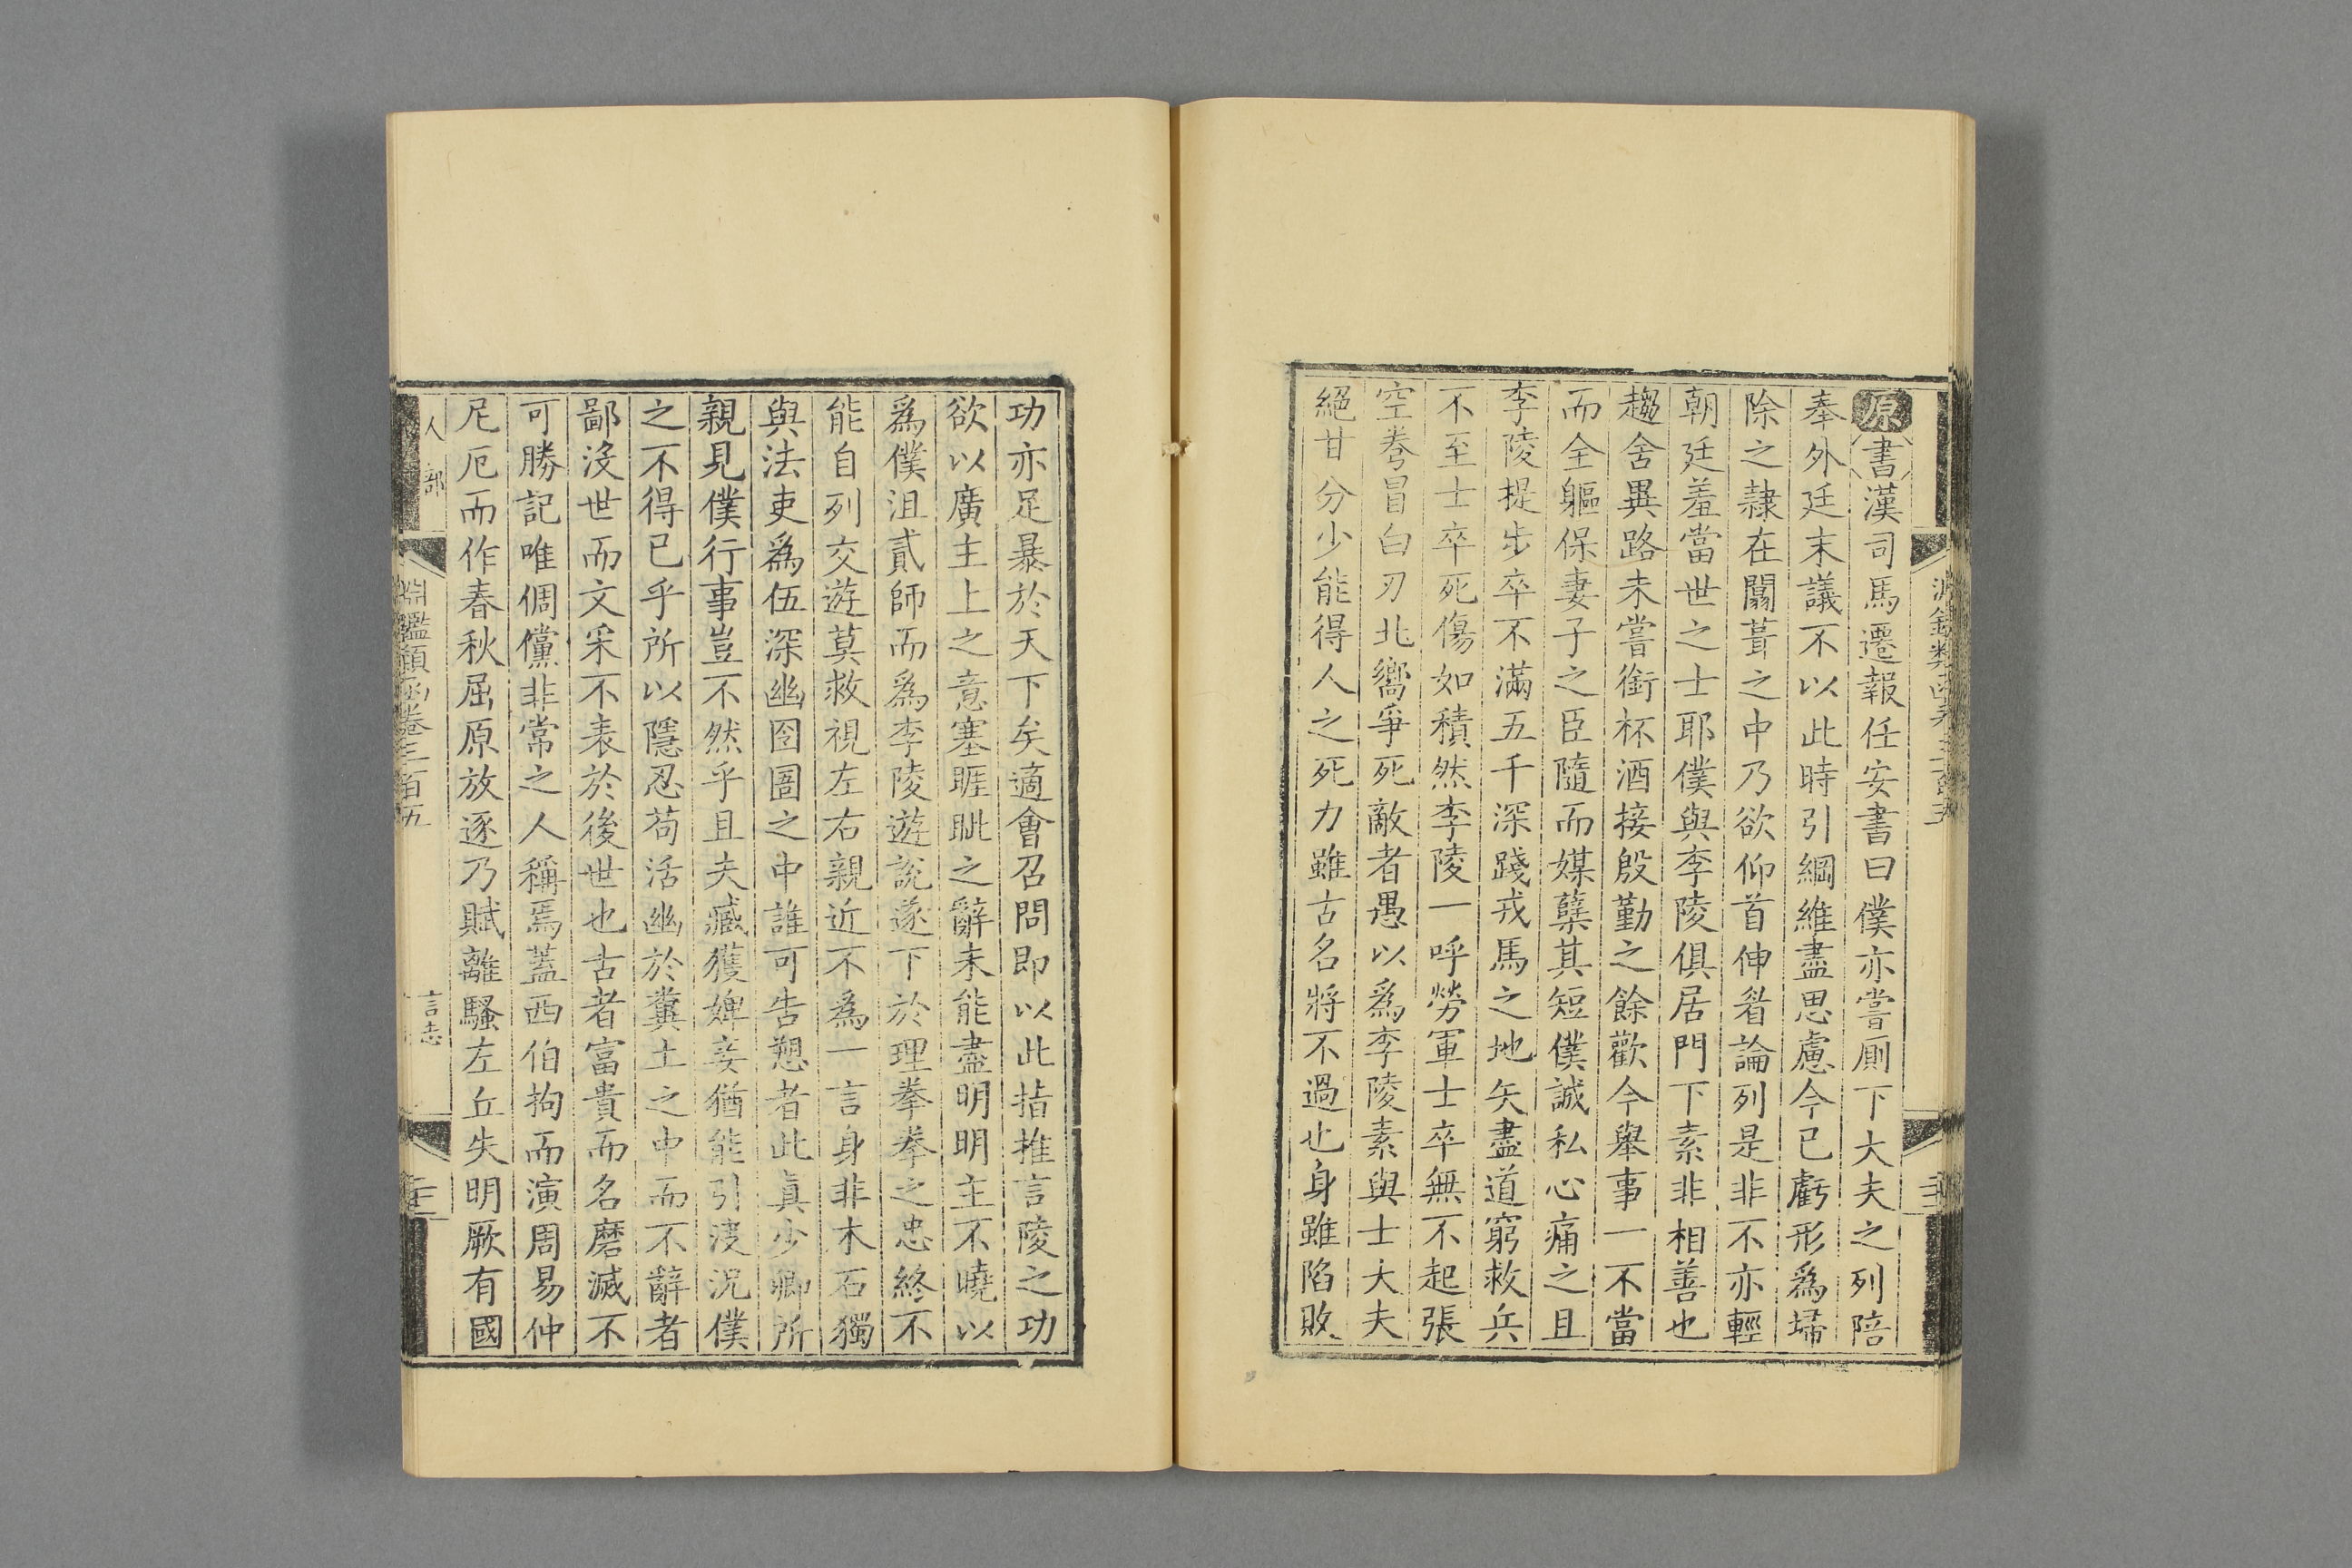 原書漢司馬遷報任安書曰僕亦嘗厠下大夫之列陪
奉外廷末議不以此時引綱維盡思慮今已虧形爲埽
除之隷在闒葺之中乃欲仰首伸眉論列是非不亦輕
朝廷羞當世之士耶僕與李陵俱居門下素非相善也
趨舍異路未嘗銜杯酒接殷勤之餘歡今舉事一不當
而全軀保妻子之臣隨而媒櫱其短僕誠私心痛之且
李陵提步卒不滿五千深踐戎馬之地矢盡道窮救兵
不至士卒死傷如積然李陵一呼勞軍士卒無不起張
空弮冒白刃北嚮爭死敵者愚以爲李陵素與士大夫
絕甘分少能得人之死力雖古名將不過也身雖陷敗
功亦足暴於天下矣適會召問即以此指推言陵之功
欲以廣主上之意塞睚眦之辭未能盡明明主不曉以
爲僕沮貳師而爲李陵遊説遂下於理拳拳之忠終不
能自列交遊莫救視左右親近不爲一言身非木石獨
與法吏爲伍深幽囹圄之中誰可告愬者此眞少卿所
親見僕行事豈不然乎且夫臧獲婢妾猶能引決況僕
之不得已乎所以隱忍苟活幽於糞土之中而不辭者
鄙沒世而文采不表於後世也古者富貴而名磨滅不
可勝記唯倜儻非常之人稱焉蓋西伯拘而演周易仲
尼厄而作春秋屈原放逐乃賦離騷左丘失明厥有國
人部
淵鑑類函卷三百五
言志